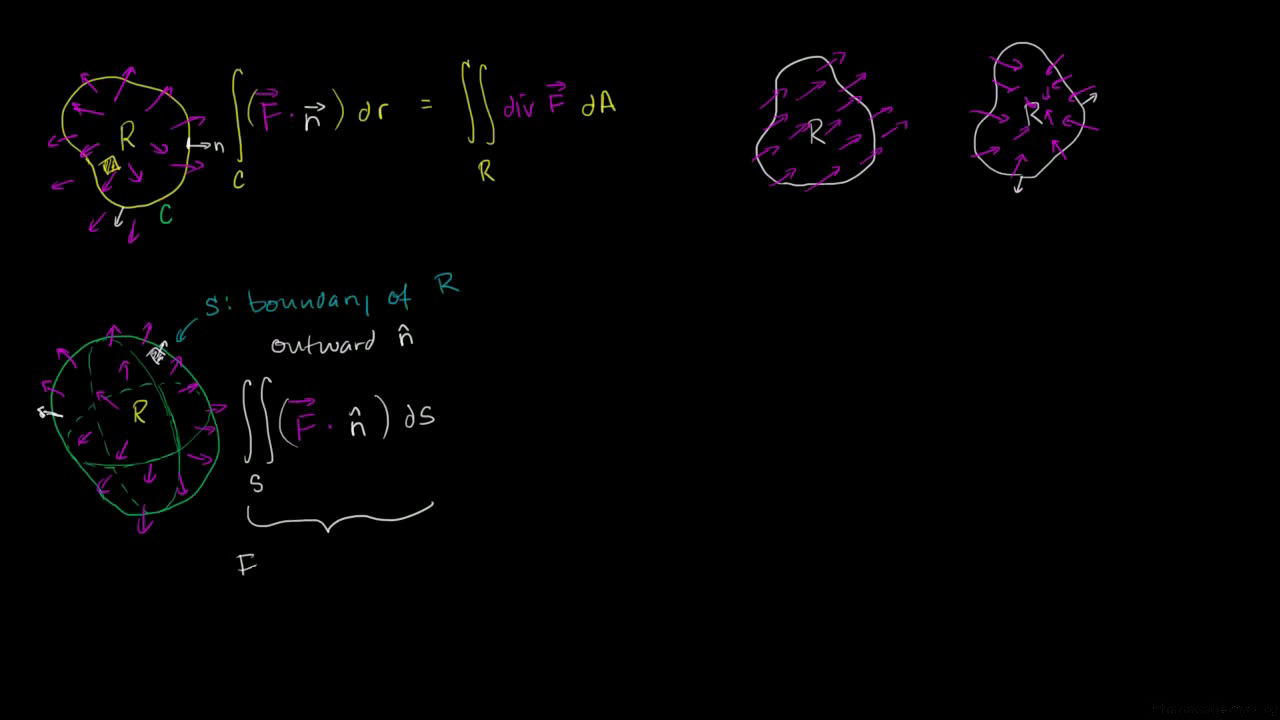 R
n
C
∫_C (F⃗ · n⃗) dr = ∬_R div F⃗ dA
R
R
S: boundary of R
outward n̂
R
∬_S (F⃗ · n̂) dS
F